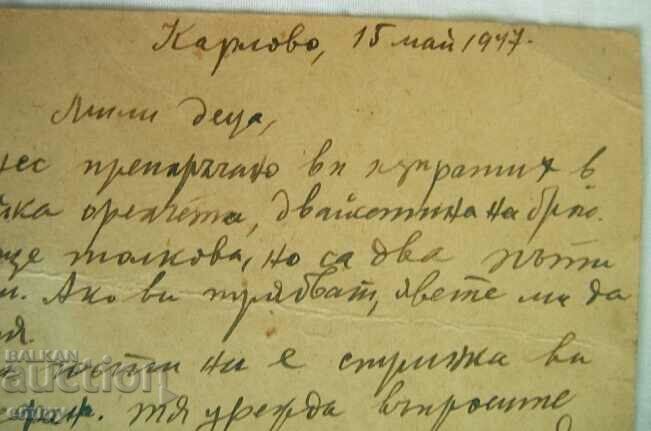 Карлово, 15 май 1947.
Мили деца,
нес препоръчано ви изпратих в
йка орехчета, двайсетина на брой.
още толкова, но са два пъти
и. Ако ви трябват, явете ми да
я.
пъти ни е стрижка ви
тя урежда въпросите
BALKAN
auction